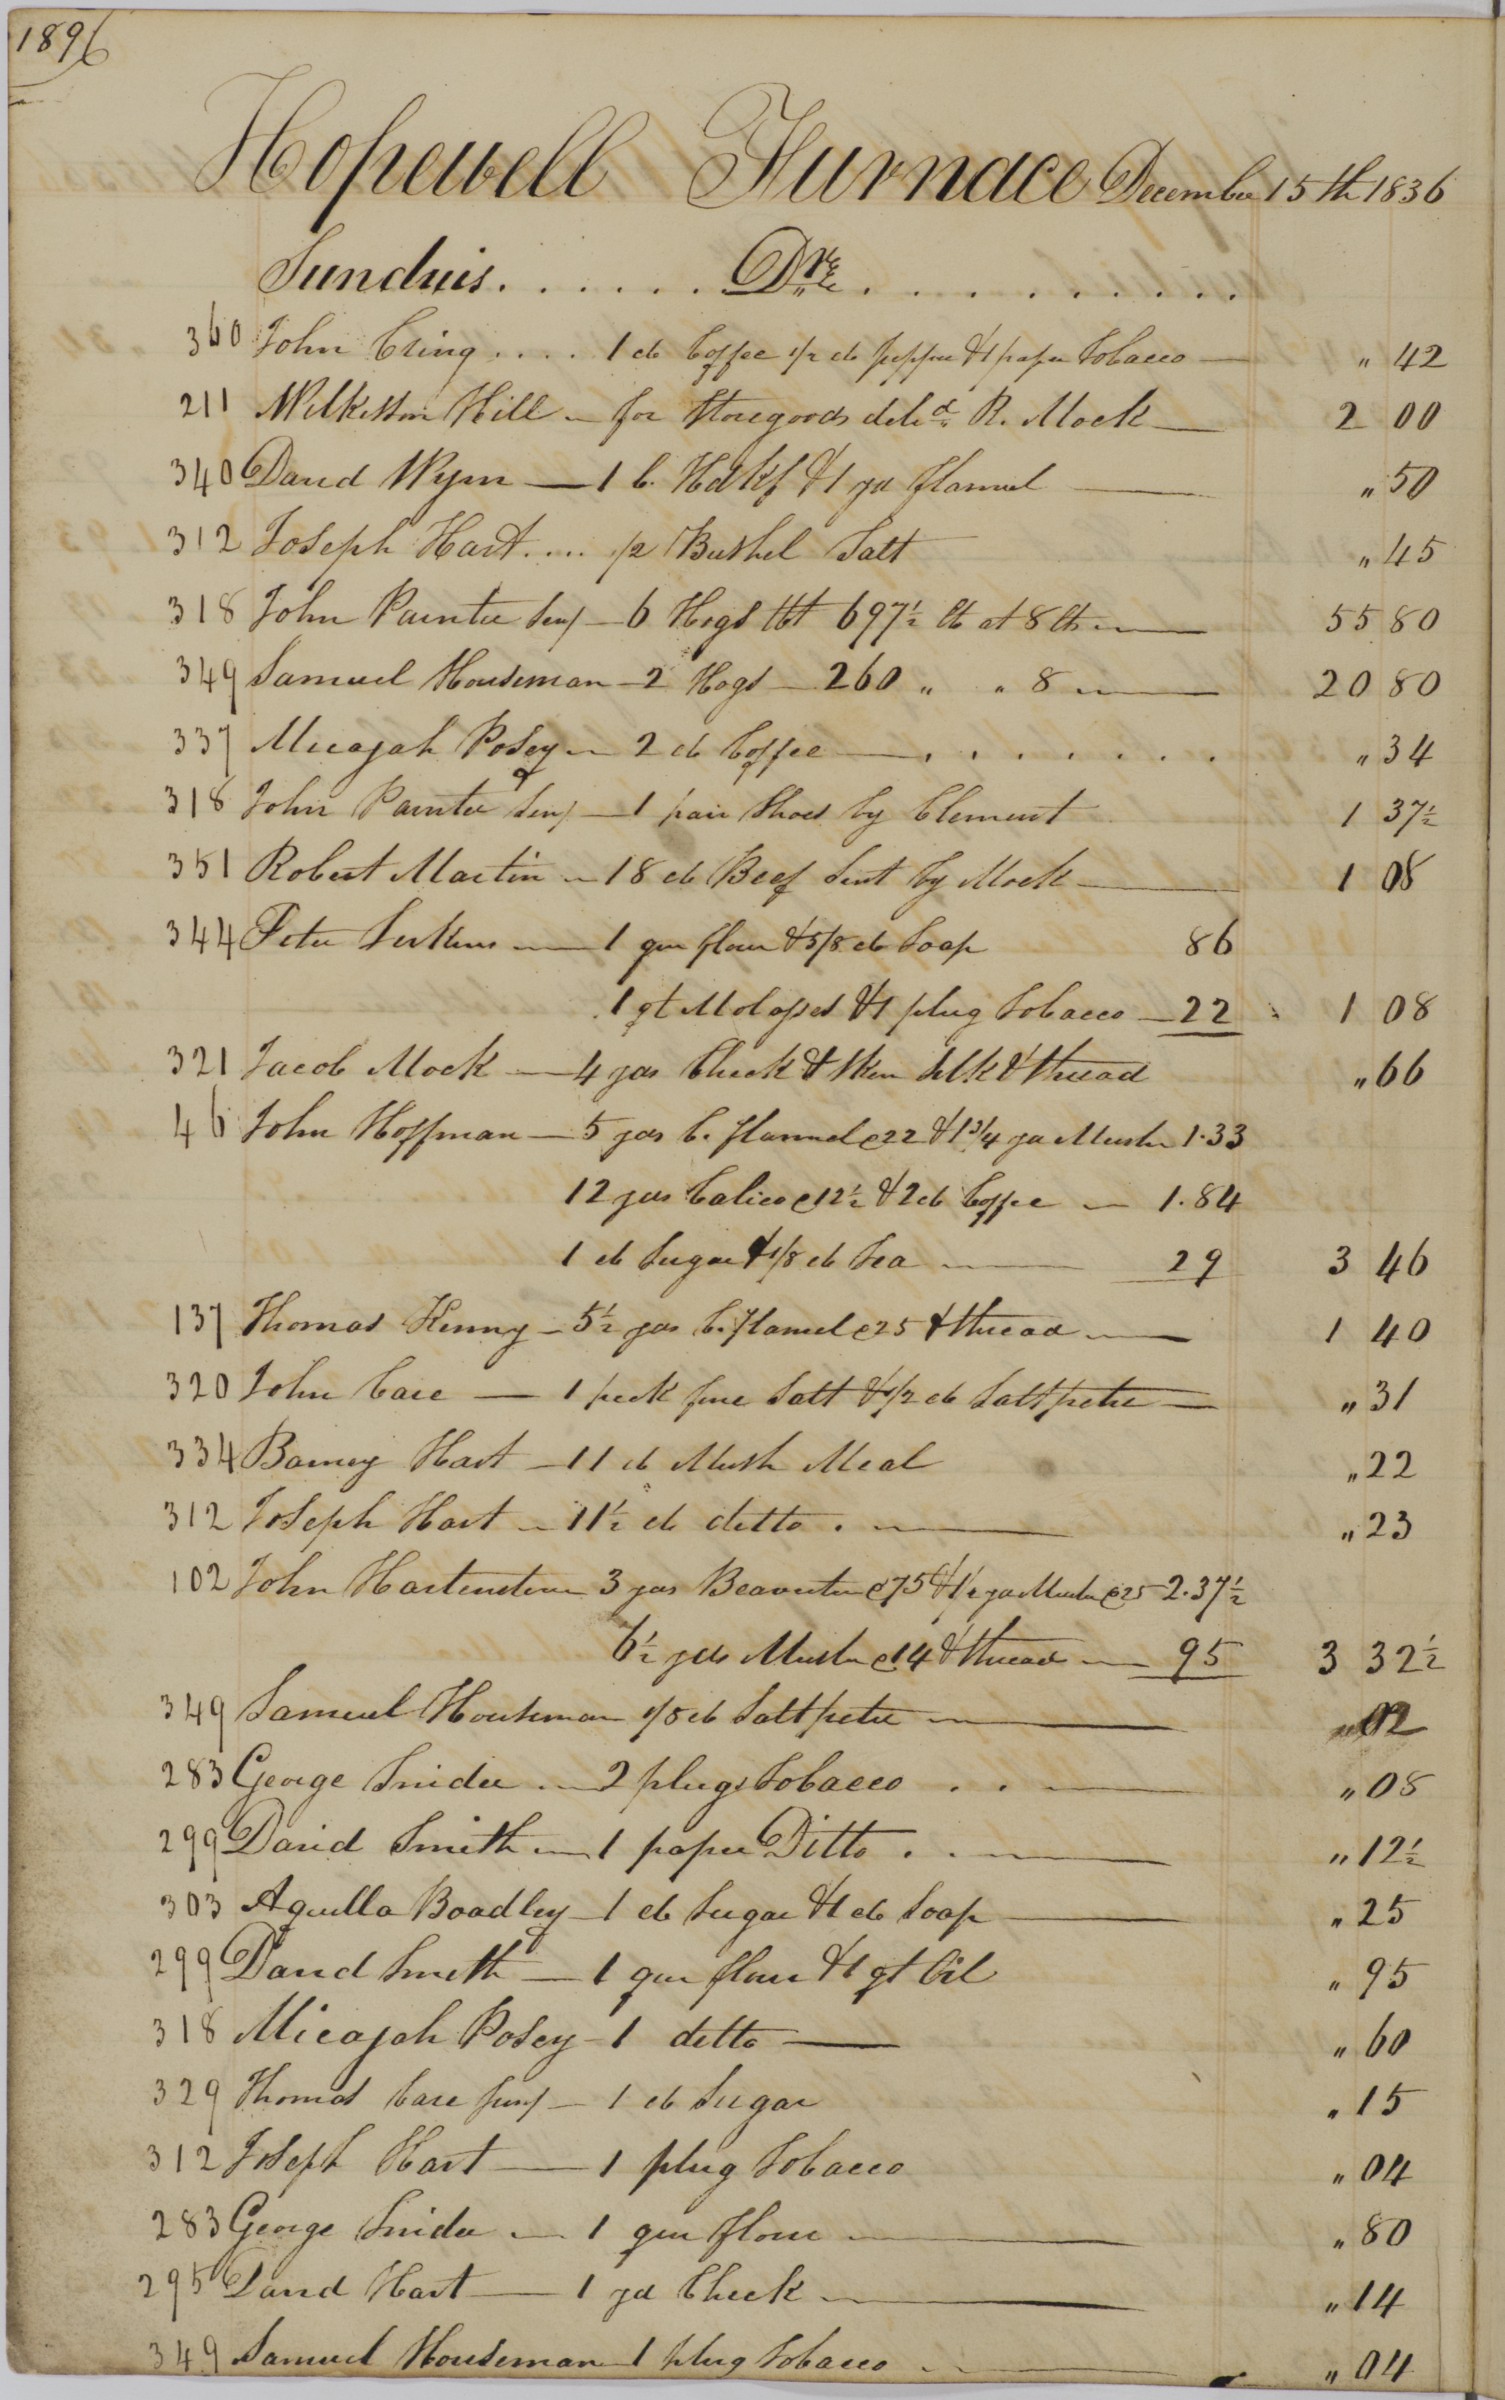 1896
Hopewell Furnace December 15th 1836
Sundries . . . . . . Drs . . . . . . . . . . .
360 John Cring .... 1 lb Coffee 1/2 lb pepper & 1 paper Tobacco — " 42
211 Wilkison Hill — for Storegoods deld. R. Mock — 2 00
340 David Wynn — 1 C. Hdkf & 1 yd flannel — " 50
312 Joseph Hart .... 1/2 Bushel Salt " 45
318 John Painter Senr — 6 Hogs Wt 697½ lb at 8 Cts — 55 80
349 Samuel Houseman — 2 Hogs — 260 " " 8 — 20 80
337 Micajah Posey — 2 lb Coffee — . . . . . . " 34
318 John Painter Senr — 1 pair Shoes by Clement 1 37½
351 Robert Martin — 18 lb Beef Sent by Mock — 1 08
344 Peter — 1 qur flour & 5/8 lb Soap 86
1 qt Molasses & 1 plug Tobacco — 22 1 08
321 Jacob Mock — 4 yds Check & Sken Silk & thread " 66
46 John Hoffman — 5 yds C. flannel @ 22 & 1 3/4 yd Muslin 1.33
12 yds Calico @ 12½ & 2 lb Coffee — 1.84
1 lb Sugar & 1/8 lb Tea — 29 3 46
137 Thomas Kenny — 5½ yds C. flannel @ 25 & thread — 1 40
320 John Care — 1 peck fine Salt & 1/2 lb Saltpetre — " 31
334 Barney Hart — 11 lb Mush Meal " 22
312 Joseph Hart — 11½ lb ditto . — " 23
102 John Hartenstine 3 yds Beaverteen @ 75 & 1/2 yd Muslin @ 25 — 2.37½
6½ yds Muslin @ 14 & thread — 95 3 32½
349 Samuel Houseman 1/8 lb Saltpetre — " 02
283 George Snider — 2 plugs Tobacco . . — " 08
299 David Smith — 1 paper Ditto . . — " 12½
303 Aquilla Boadley — 1 lb Sugar & 1 lb Soap — " 25
299 David Smith — 1 qur flour & 1 qt Oil " 95
318 Micajah Posey — 1 ditto — " 60
329 Thomas Care Junr — 1 lb Sugar " 15
312 Joseph Hart — 1 plug Tobacco " 04
283 George Snider — 1 qur flour — " 80
295 David Hart — 1 yd Check — " 14
349 Samuel Houseman 1 plug Tobacco — " 04